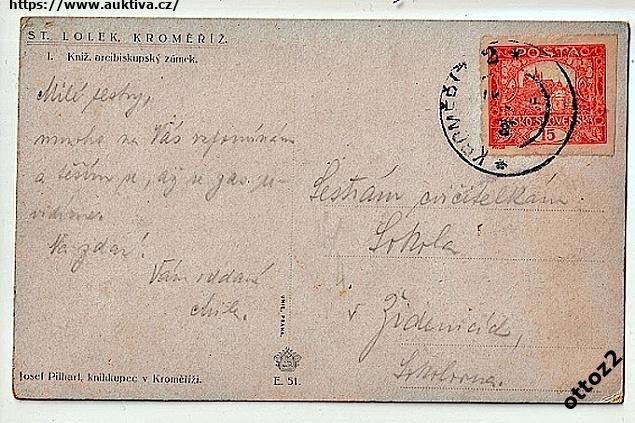 https://www.auktiva.cz/
ST. LOLEK, KROMĚŘÍŽ.
I. Kníž. arcibiskupský zámek.
Milé sestry,
mnoho na Vás vzpomínám
a těším se, až se zas u-
vidíme.
Nazdar!
Vám oddaná
Mila.
Josef Pilharl, knihkupec v Kroměříži.
UNIE, PRAHA.
E. 51.
KROMĚŘÍŽ
POŠTA
ČESKOSLOVENSKÁ
15
Sestrám cvičitelkám
Sokola
v Židenicích,
Sokolovna.
ottoz2